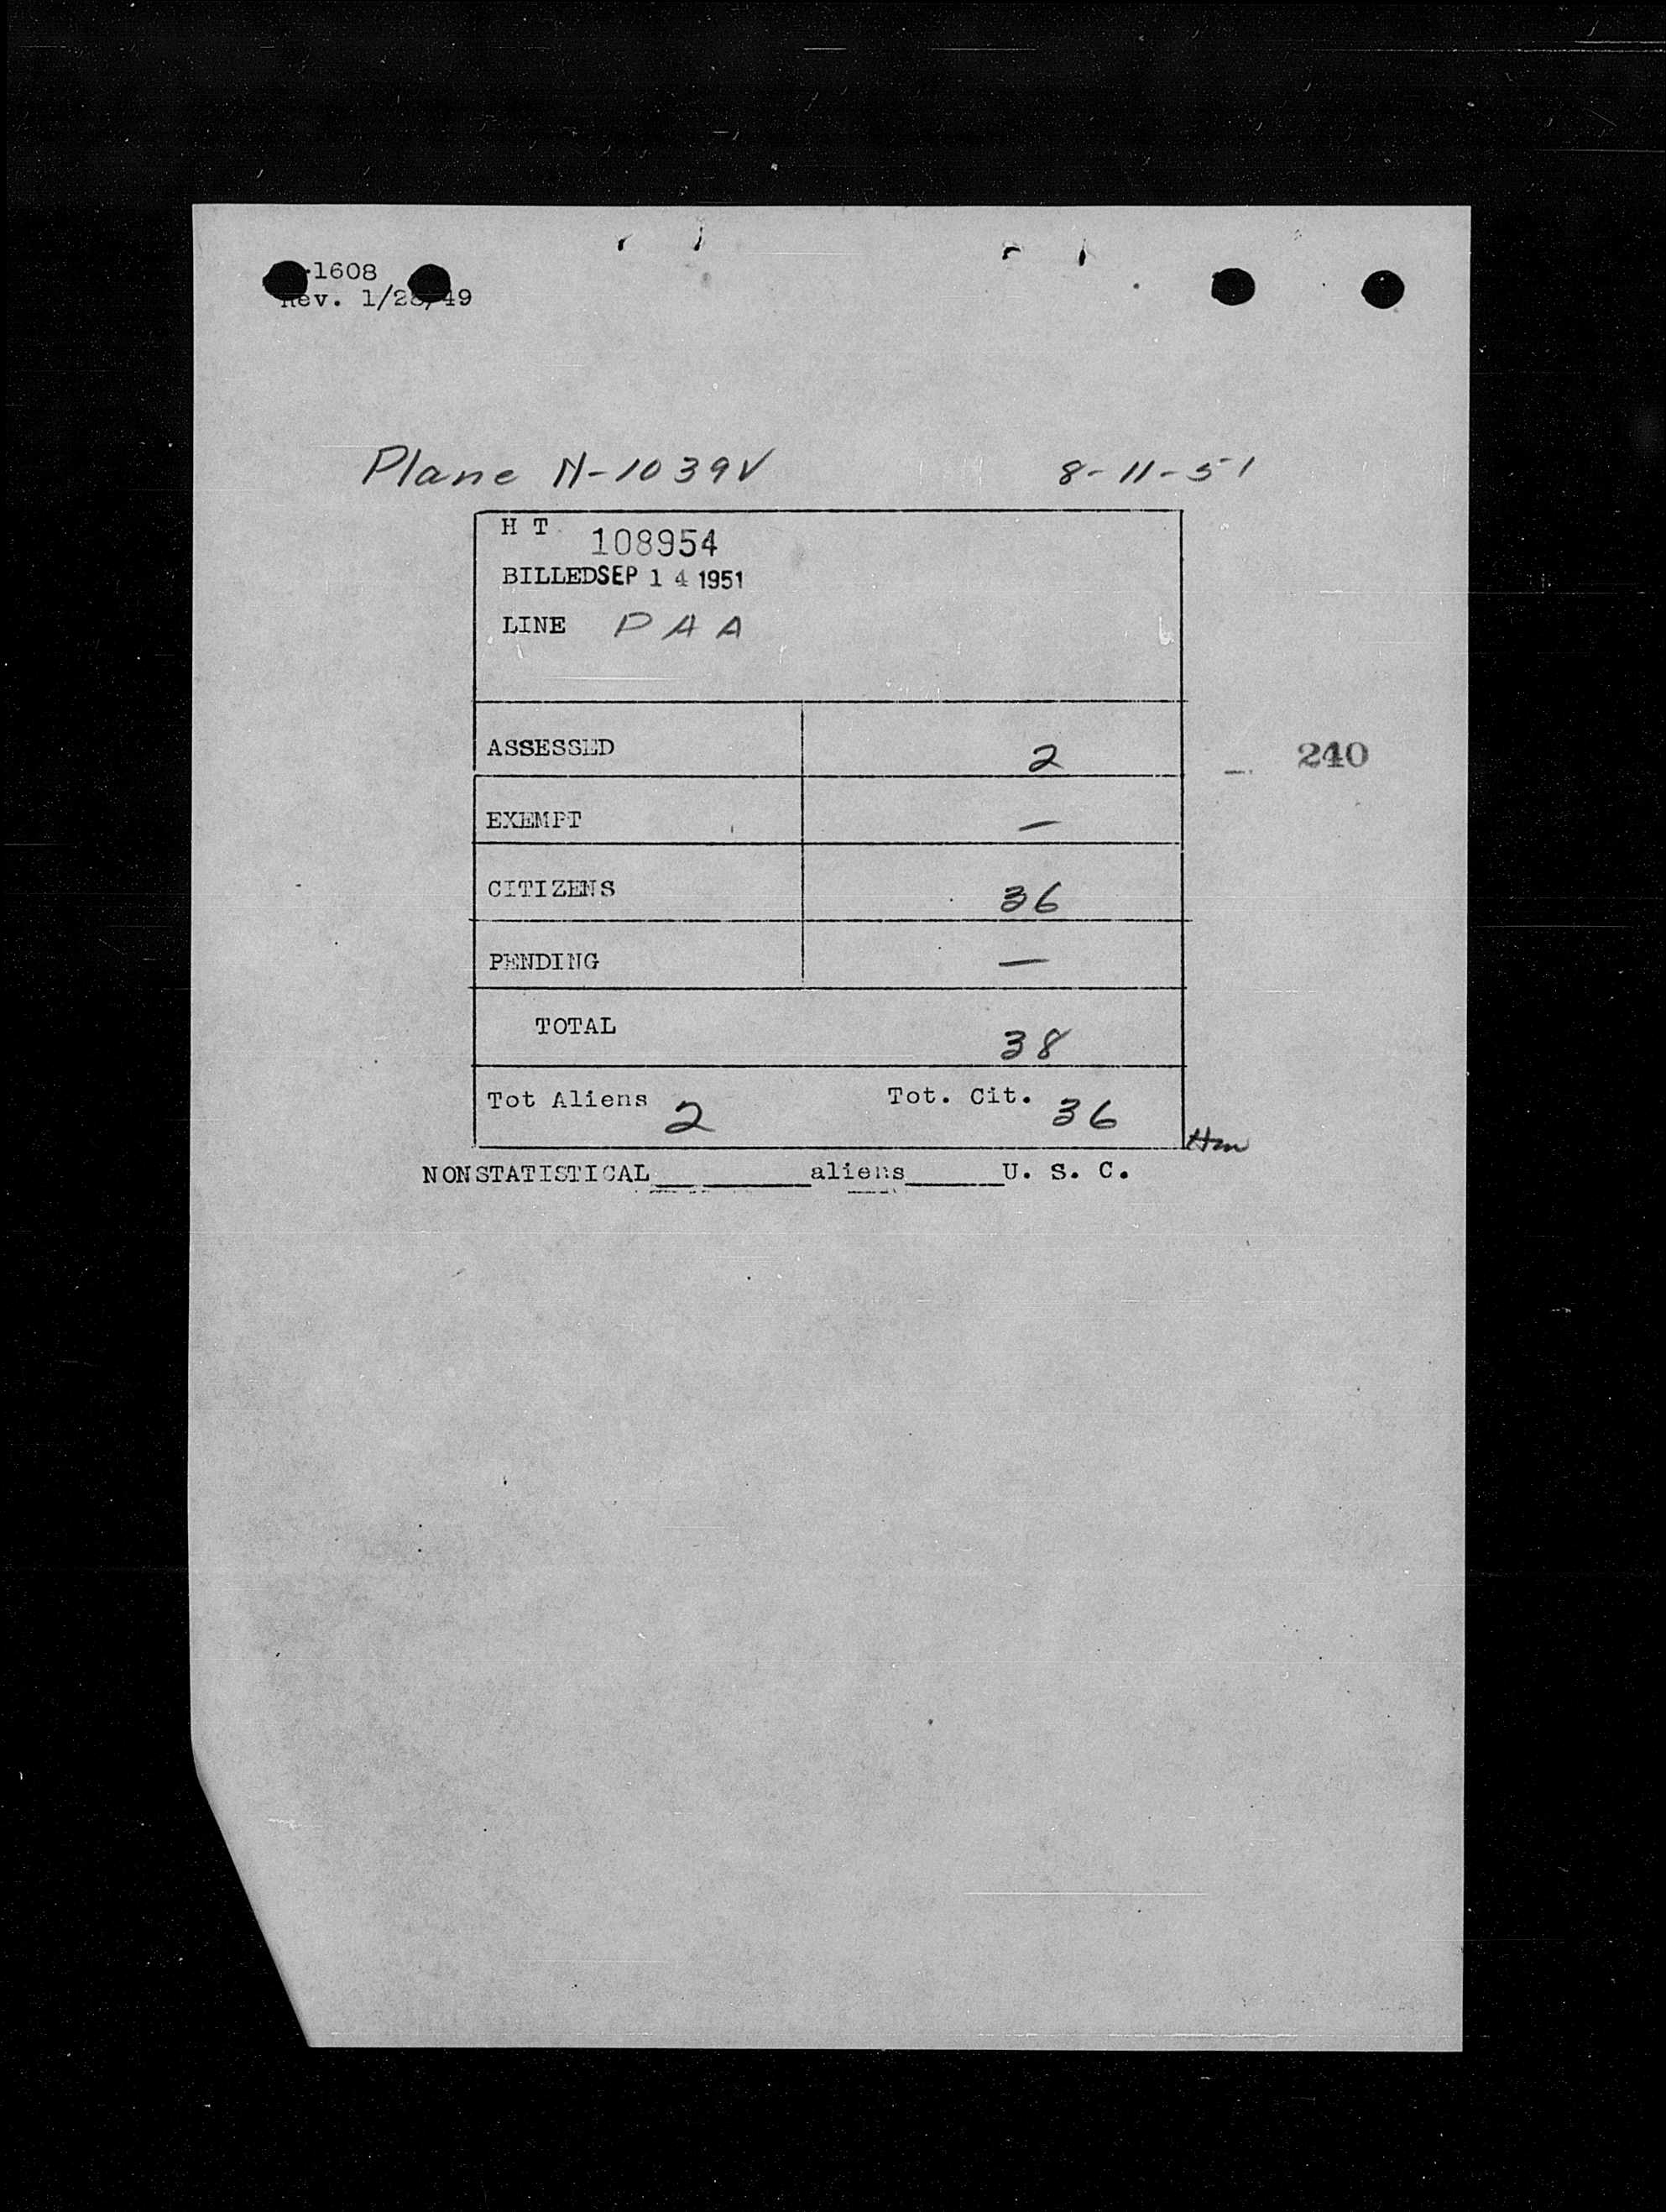 1608
Rev. 1/28/49
Plane N-1039V 8-11-51
H T 108954
BILLED SEP 14 1951
LINE PAA
ASSESSED 2
240
EXEMPT —
CITIZENS 36
PENDING —
TOTAL 38
Tot Aliens 2 Tot. Cit. 36
NONSTATISTICAL__________aliens______U. S. C.